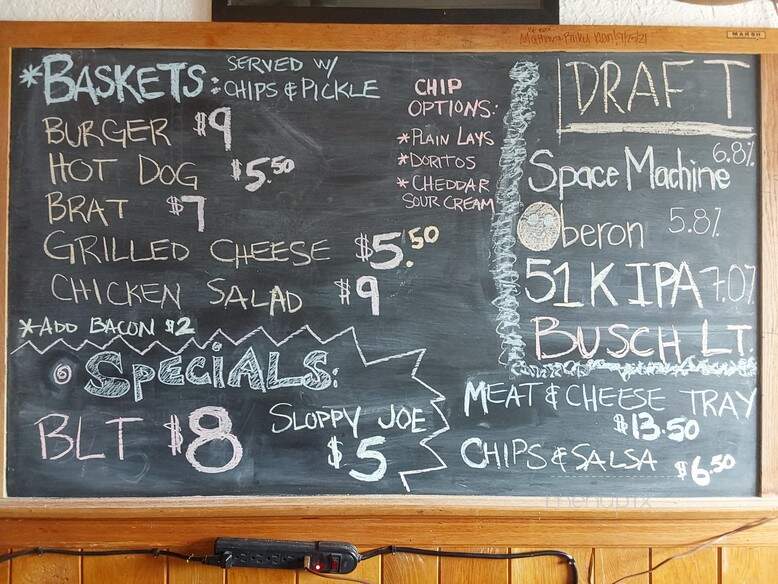 MARSH
*BASKETS: SERVED W/
CHIPS & PICKLE
BURGER $9
HOT DOG $5.50
BRAT $7
GRILLED CHEESE $5.50
CHICKEN SALAD $9
*ADD BACON $2
CHIP
OPTIONS:
*PLAIN LAYS
*DORITOS
*CHEDDAR
SOUR CREAM
DRAFT
Space Machine 6.8%
Oberon 5.8%
51K IPA 7.0%
BUSCH LT.
SPECIALS:
BLT $8
SLOPPY JOE
$5
MEAT & CHEESE TRAY
$13.50
CHIPS & SALSA $6.50
menupix